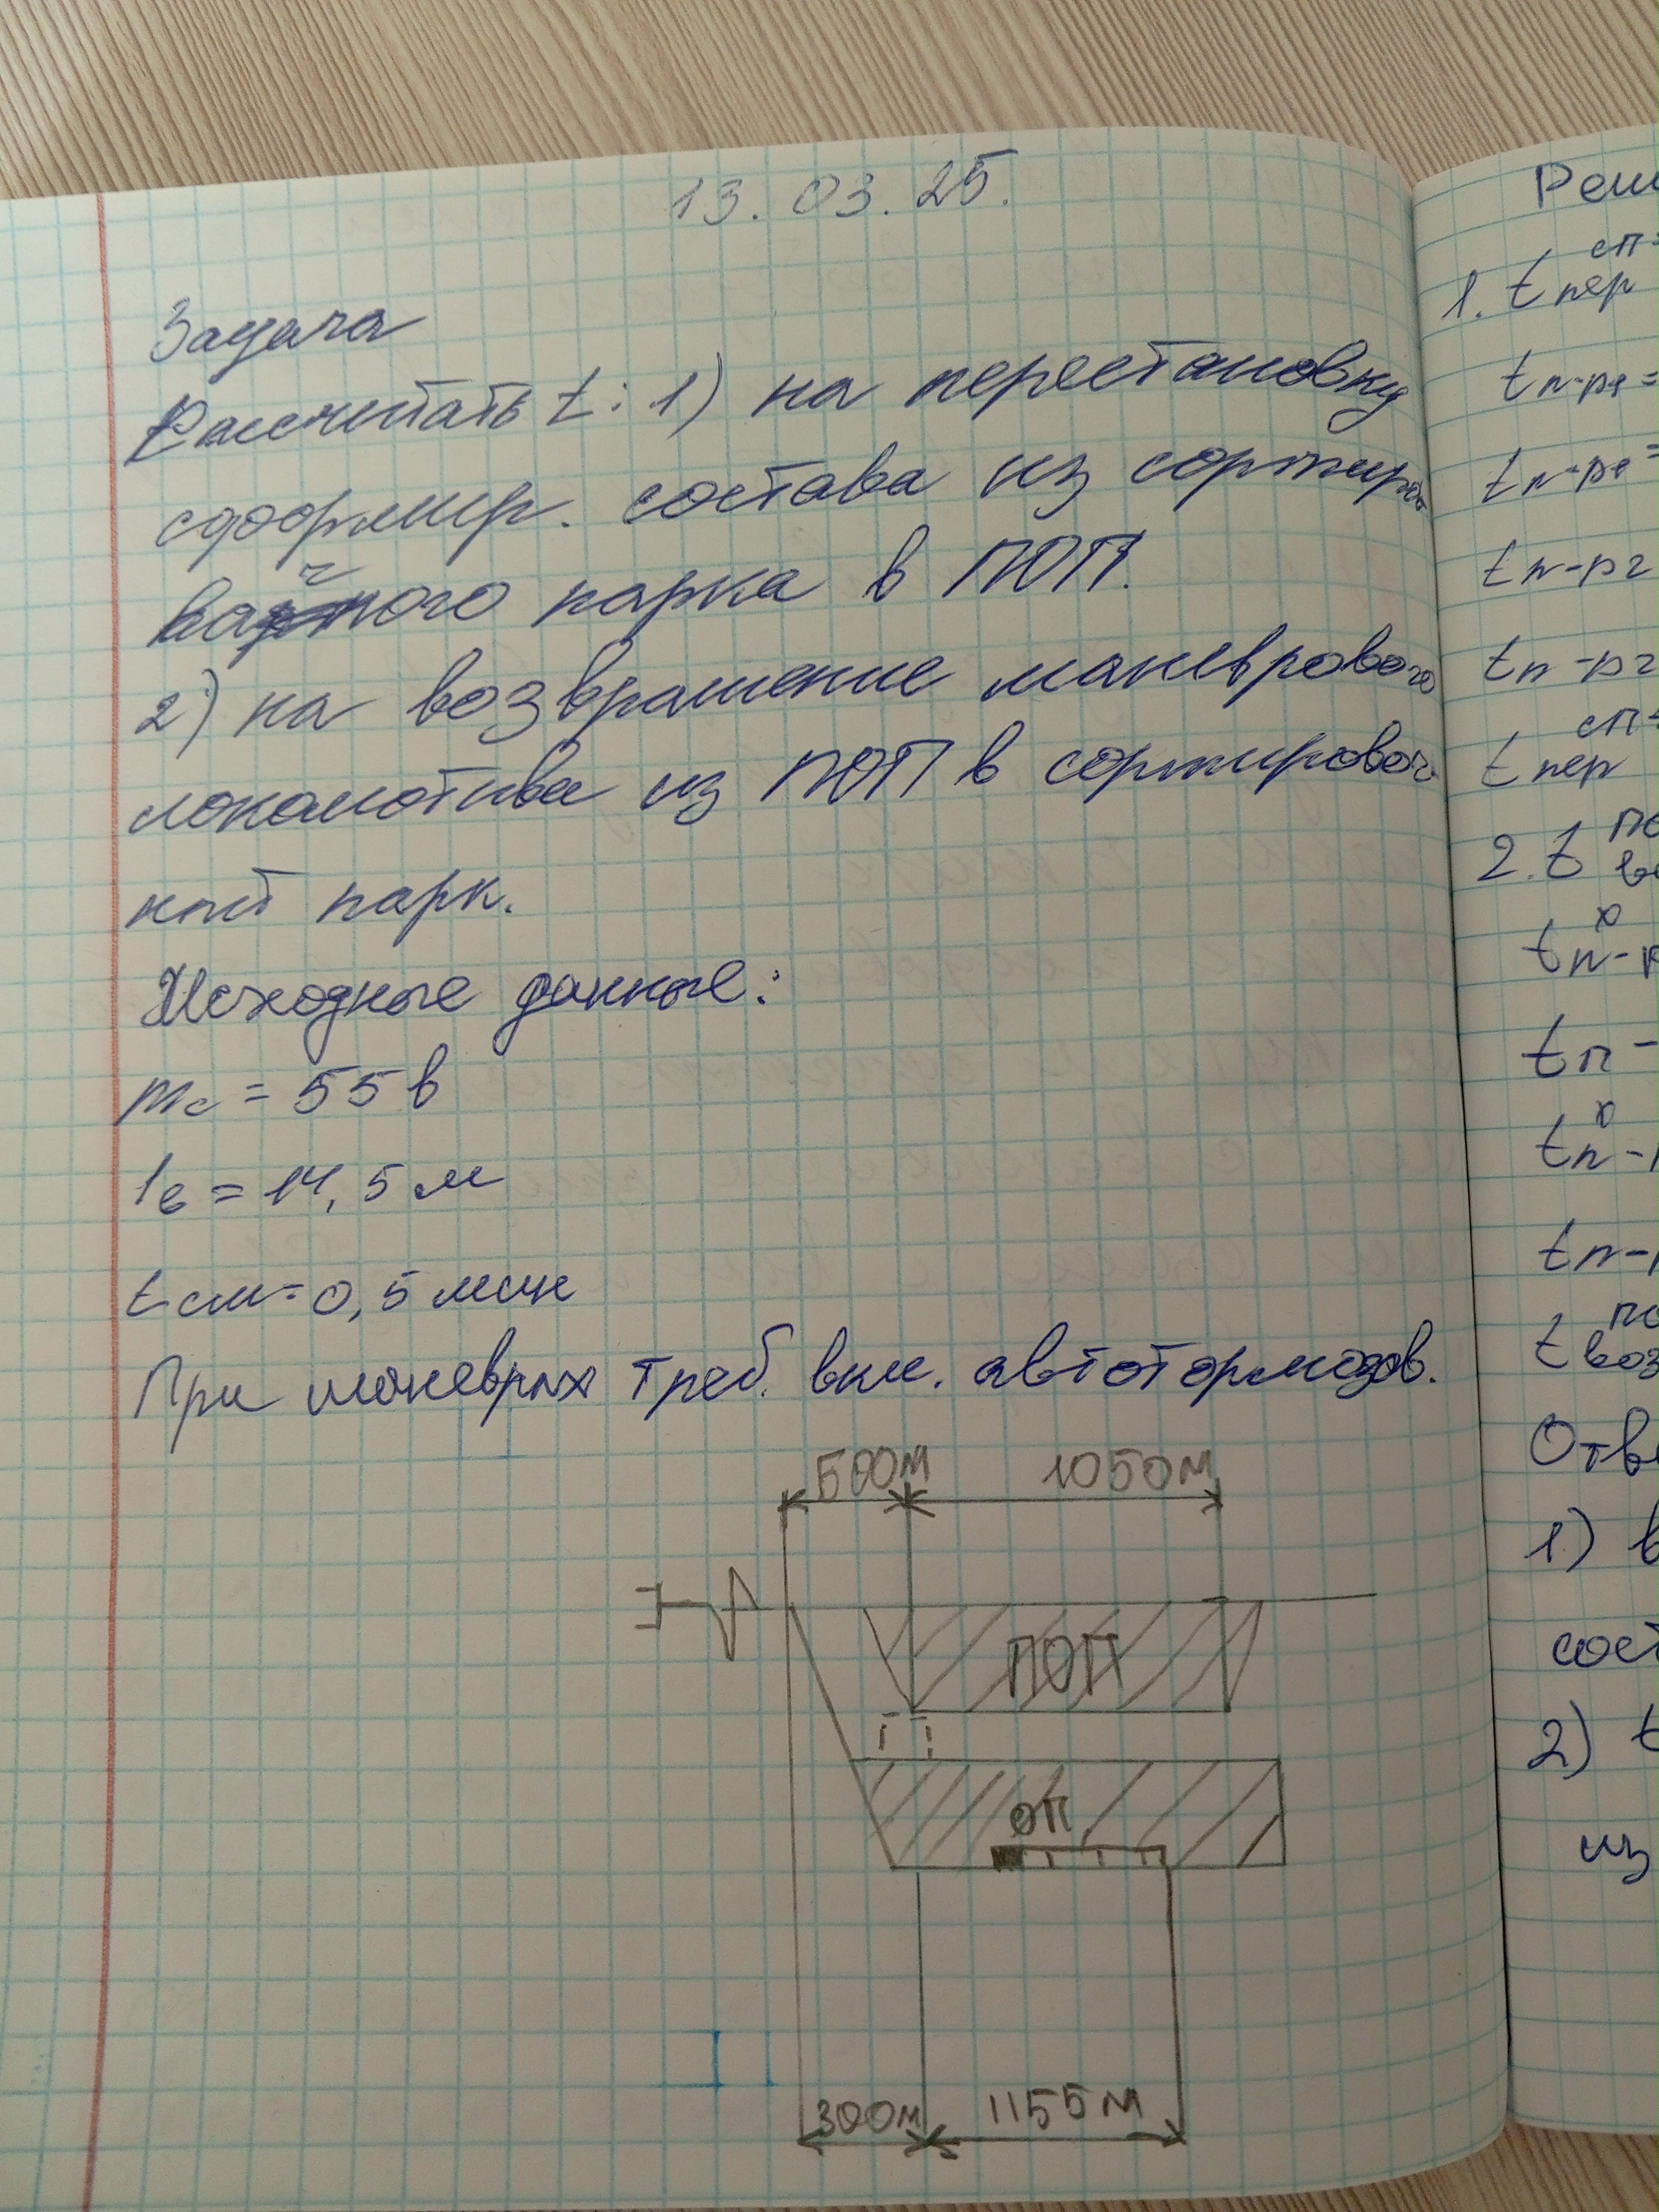 13.03.25.
Задача
Рассчитать t: 1) на перестановку
сформир. состава из сортиро
вочного парка в ПОП.
2) на возвращение маневрового
локомотива из ПОП в сортировоч
ный парк.
Исходные данные:
mс = 55 в
lв = 14,5 м
tсм = 0,5 мин
При маневрах треб. вкл. автотормозов.
500м 1050м
ПОП
ОП
300м 1155м
Реш
1. t сп пер =
tп-р1 =
tп-р1 =
tп-р2
tп-р2
t сп пер =
2. t по в
t х п-р
tп-
t х п-
tп-
t по воз
Отв
1) в
сост
2) t
из